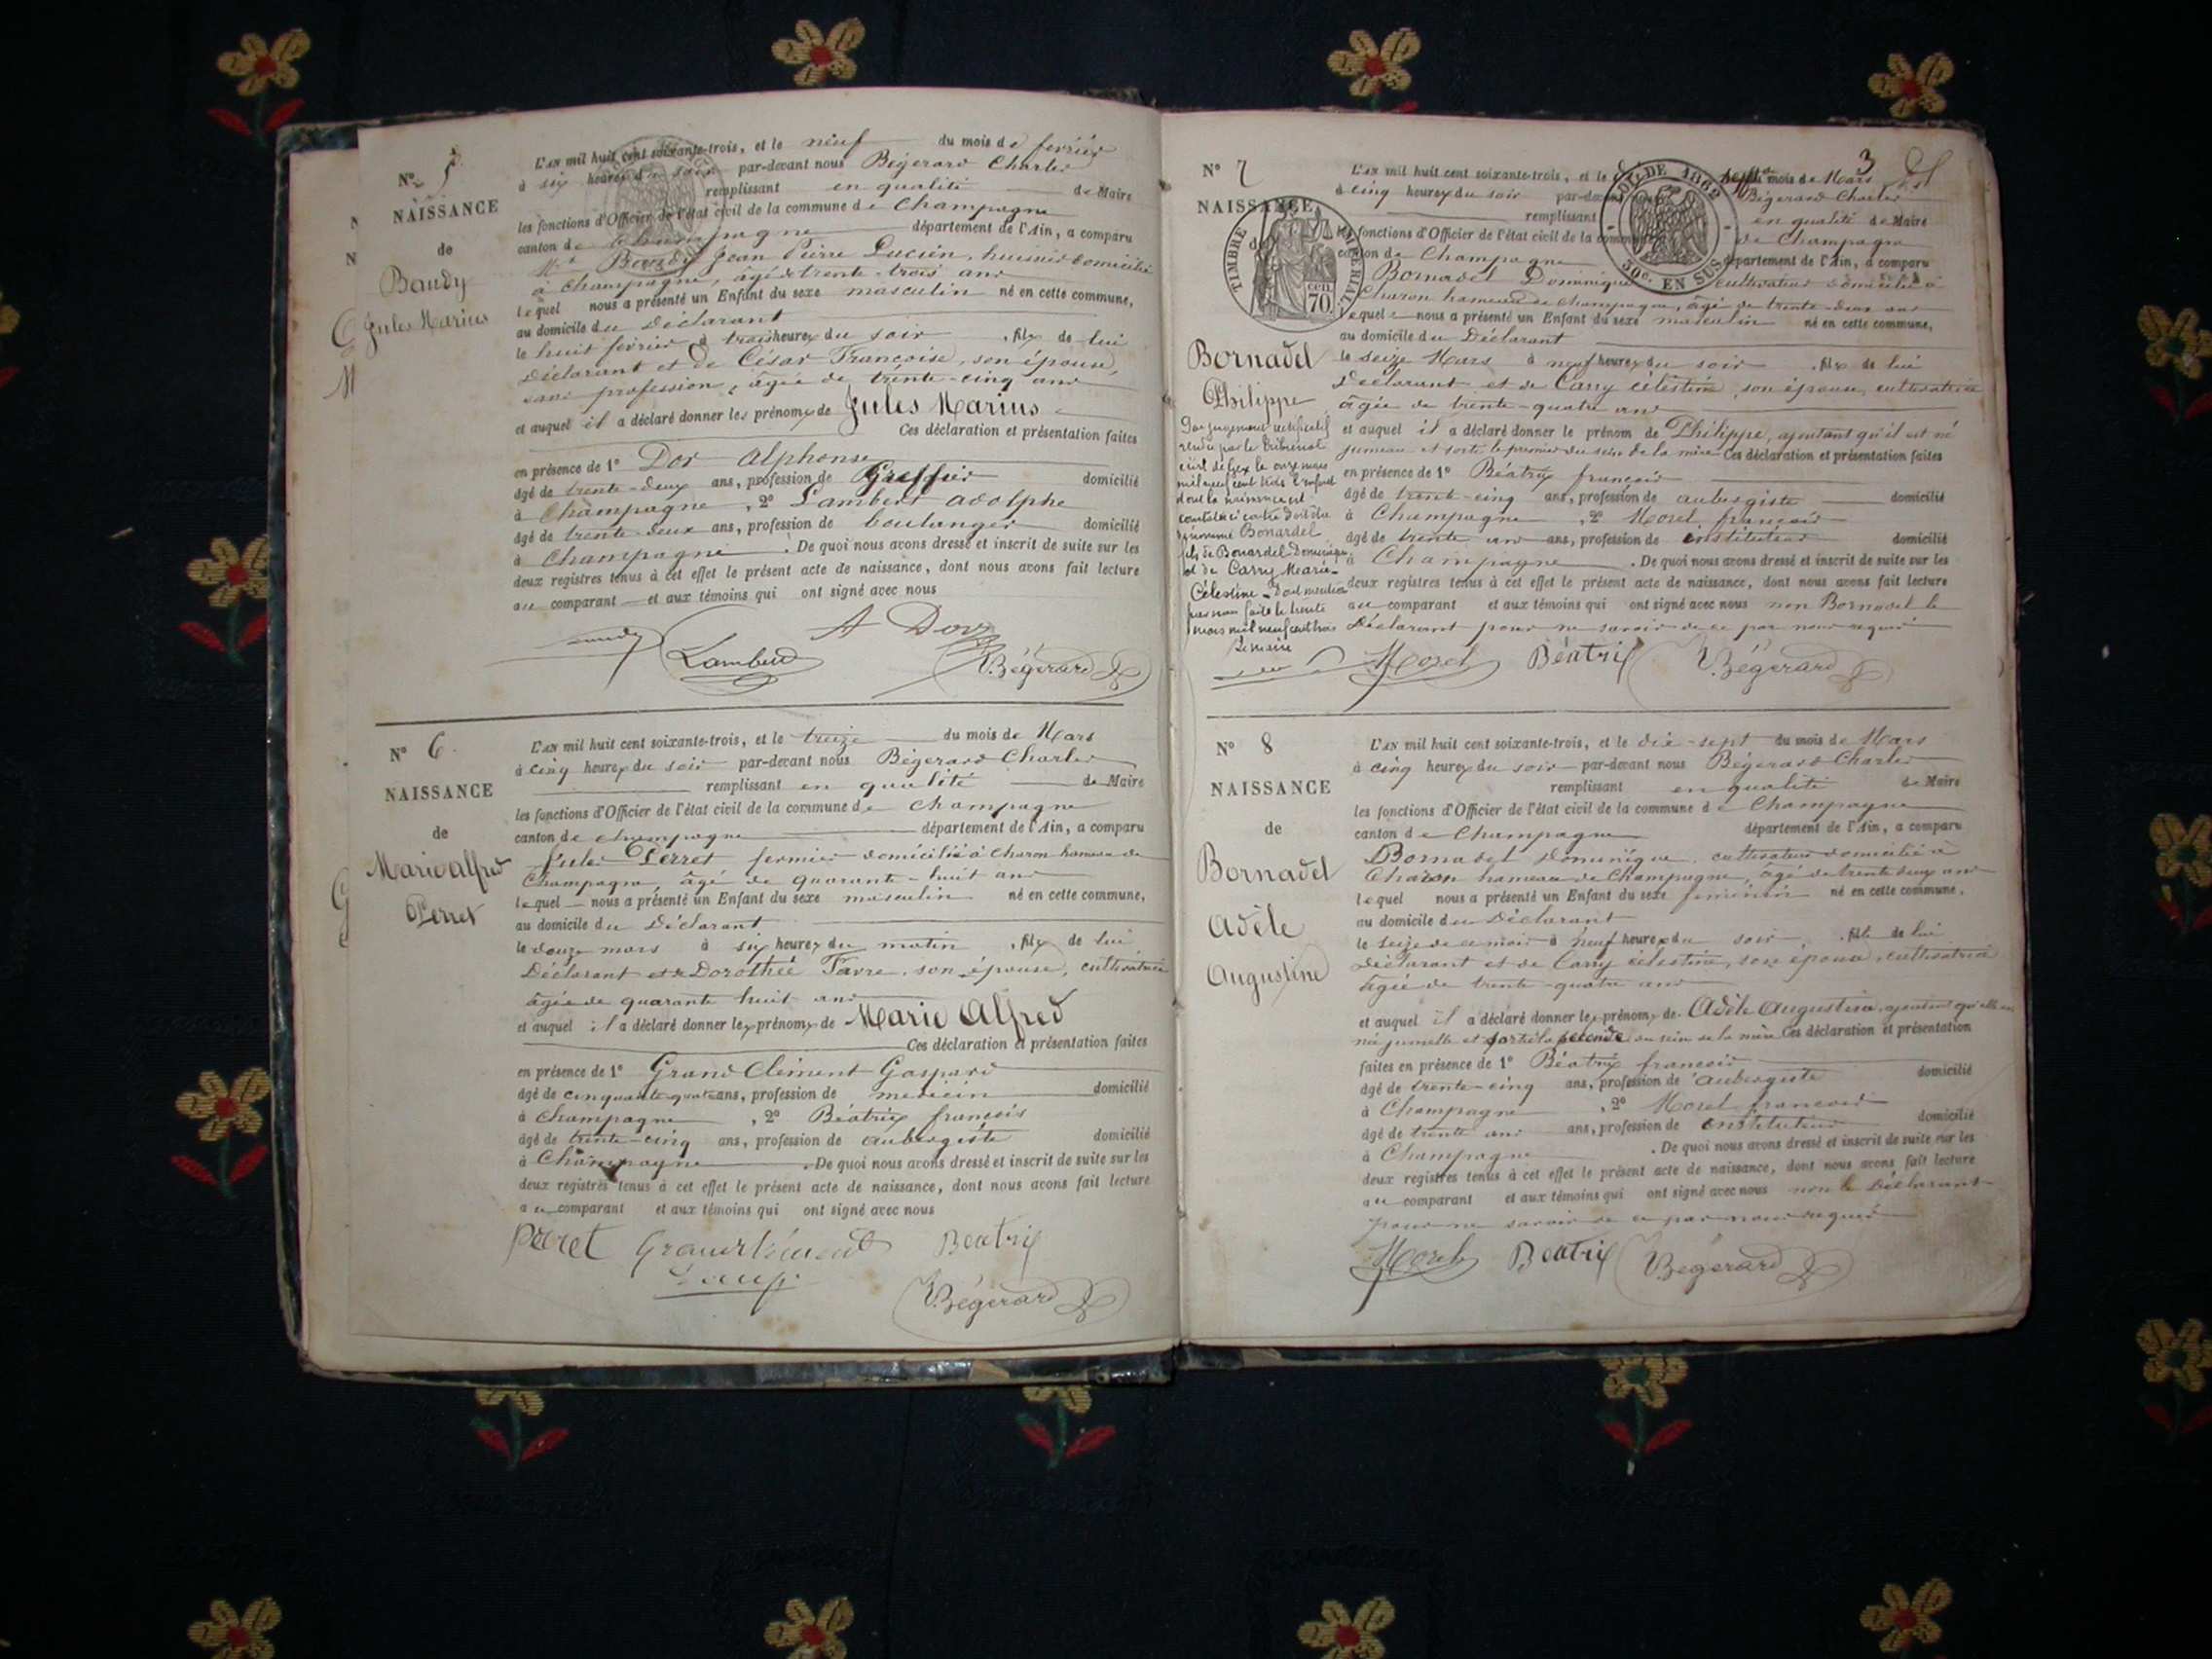 N° 5
NAISSANCE
de
Baudy
Jules Marius
L'AN mil huit cent soixante-trois, et le neuf du mois de février
à six heures du soir par-devant nous Bégerard Charles
remplissant en qualité de Maire
les fonctions d'Officier de l'état civil de la commune de Champagne
canton de Champagne département de l'Ain, a comparu
Baudy Jean Pierre Lucien, huissier domicilié
à Champagne, âgé de trente-trois ans
lequel nous a présenté un Enfant du sexe masculin né en cette commune,
au domicile du Déclarant
le huit février à trois heures du soir, fils de lui
Déclarant et de César Françoise, son épouse,
sans profession, âgée de trente-cinq ans
et auquel il a déclaré donner les prénoms de Jules Marius
Ces déclaration et présentation faites
en présence de 1° Dor Alphonse
âgé de trente-deux ans, profession de Greffier domicilié
à Champagne, 2° Lambert Adolphe
âgé de trente-deux ans, profession de boulanger domicilié
à Champagne. De quoi nous avons dressé et inscrit de suite sur les
deux registres tenus à cet effet le présent acte de naissance, dont nous avons fait lecture
au comparant et aux témoins qui ont signé avec nous
A Dor
Lambert
Bégerard
N° 6
NAISSANCE
de
Marie Alfred
Perret
L'AN mil huit cent soixante-trois, et le treize du mois de Mars
à cinq heures du soir par-devant nous Bégerard Charles
remplissant en qualité de Maire
les fonctions d'Officier de l'état civil de la commune de Champagne
canton de Champagne département de l'Ain, a comparu
Jules Perret fermier domicilié à Charon hameau de
Champagne, âgé de quarante-huit ans
lequel nous a présenté un Enfant du sexe masculin né en cette commune,
au domicile du Déclarant
le douze mars à six heures du matin, fils de lui
Déclarant et de Dorothée Favre, son épouse, cultivatrice
âgée de quarante huit ans
et auquel il a déclaré donner les prénoms de Marie Alfred
Ces déclaration et présentation faites
en présence de 1° Grand Clément Gaspard
âgé de cinquante-quatre ans, profession de medecin domicilié
à Champagne, 2° Béatrix françois
âgé de trente-cinq ans, profession de aubergiste domicilié
à Champagne. De quoi nous avons dressé et inscrit de suite sur les
deux registres tenus à cet effet le présent acte de naissance, dont nous avons fait lecture
au comparant et aux témoins qui ont signé avec nous
Perret Grandclément Beatrix
Bégerard
N° 7
3
NAISSANCE
TIMBRE IMPÉRIAL
cen. 70
LOI DE 1862
30c. EN SUS
Bornadel
Philippe
Par jugement rectificatif
rendu par le tribunal
civil de Belley le onze mars
mil neuf cent trois l'enfant
dont la naissance est
constatée ci contre doit être
dénommé Bonardel
fils de Bonardel Dominique
et de Carry Marie-
Célestine - Dont mention
par nous faite le trente
mars mil neuf cent trois
Le maire
L'AN mil huit cent soixante-trois, et le sept mois de Mars
à cinq heures du soir Bégerard Charles
remplissant en qualité de Maire
les fonctions d'Officier de l'état civil de la commune de Champagne
canton de Champagne département de l'Ain, a comparu
Bornadel Dominique cultivateur domicilié à
Charon hameau de Champagne, âgé de trente-deux ans
lequel nous a présenté un Enfant du sexe masculin né en cette commune,
au domicile du Déclarant
le seize Mars à neuf heures du soir, fils de lui
Déclarant et de Carry célestine, son épouse, cultivatrice
âgée de trente-quatre ans
et auquel il a déclaré donner le prénom de Philippe, ajoutant qu'il est né
jumeau et sorti le premier du sein de la mère Ces déclaration et présentation faites
en présence de 1° Béatrix françois
âgé de trente-cinq ans, profession de aubergiste domicilié
à Champagne, 2° Morel françois
âgé de trente ans ans, profession de instituteur domicilié
à Champagne. De quoi nous avons dressé et inscrit de suite sur les
deux registres tenus à cet effet le présent acte de naissance, dont nous avons fait lecture
au comparant et aux témoins qui ont signé avec nous non Bornadel le
Déclarant pour ne savoir de ce par nous requis
Morel Béatrix Bégerard
N° 8
NAISSANCE
de
Bornadel
Adèle
Augustine
L'AN mil huit cent soixante-trois, et le dix-sept du mois de Mars
à cinq heures du soir par-devant nous Bégerard Charles
remplissant en qualité de Maire
les fonctions d'Officier de l'état civil de la commune de Champagne
canton de Champagne département de l'Ain, a comparu
Bornadel Dominique, cultivateur domicilié à
Charon hameau de Champagne, âgé de trente deux ans
lequel nous a présenté un Enfant du sexe féminin né en cette commune,
au domicile du Déclarant
le seize de ce mois à neuf heures du soir, fille de lui
Déclarant et de Carry célestine, son épouse, cultivatrice
âgée de trente-quatre ans
et auquel il a déclaré donner les prénoms de Adèle Augustine, ajoutant qu'elle est
née jumelle et sortie la seconde du sein de la mère Ces déclaration et présentation
faites en présence de 1° Béatrix françois
âgé de trente-cinq ans, profession de aubergiste domicilié
à Champagne, 2° Morel françois
âgé de trente ans ans, profession de instituteur domicilié
à Champagne. De quoi nous avons dressé et inscrit de suite sur les
deux registres tenus à cet effet le présent acte de naissance, dont nous avons fait lecture
au comparant et aux témoins qui ont signé avec nous non le Déclarant
pour ne savoir de ce par nous requis
Morel Beatrix Bégerard